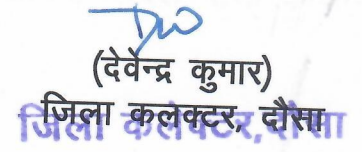 (देवेन्द्र कुमार)
जिला कलक्टर, दौसा
जिला कलेक्टर, दौसा